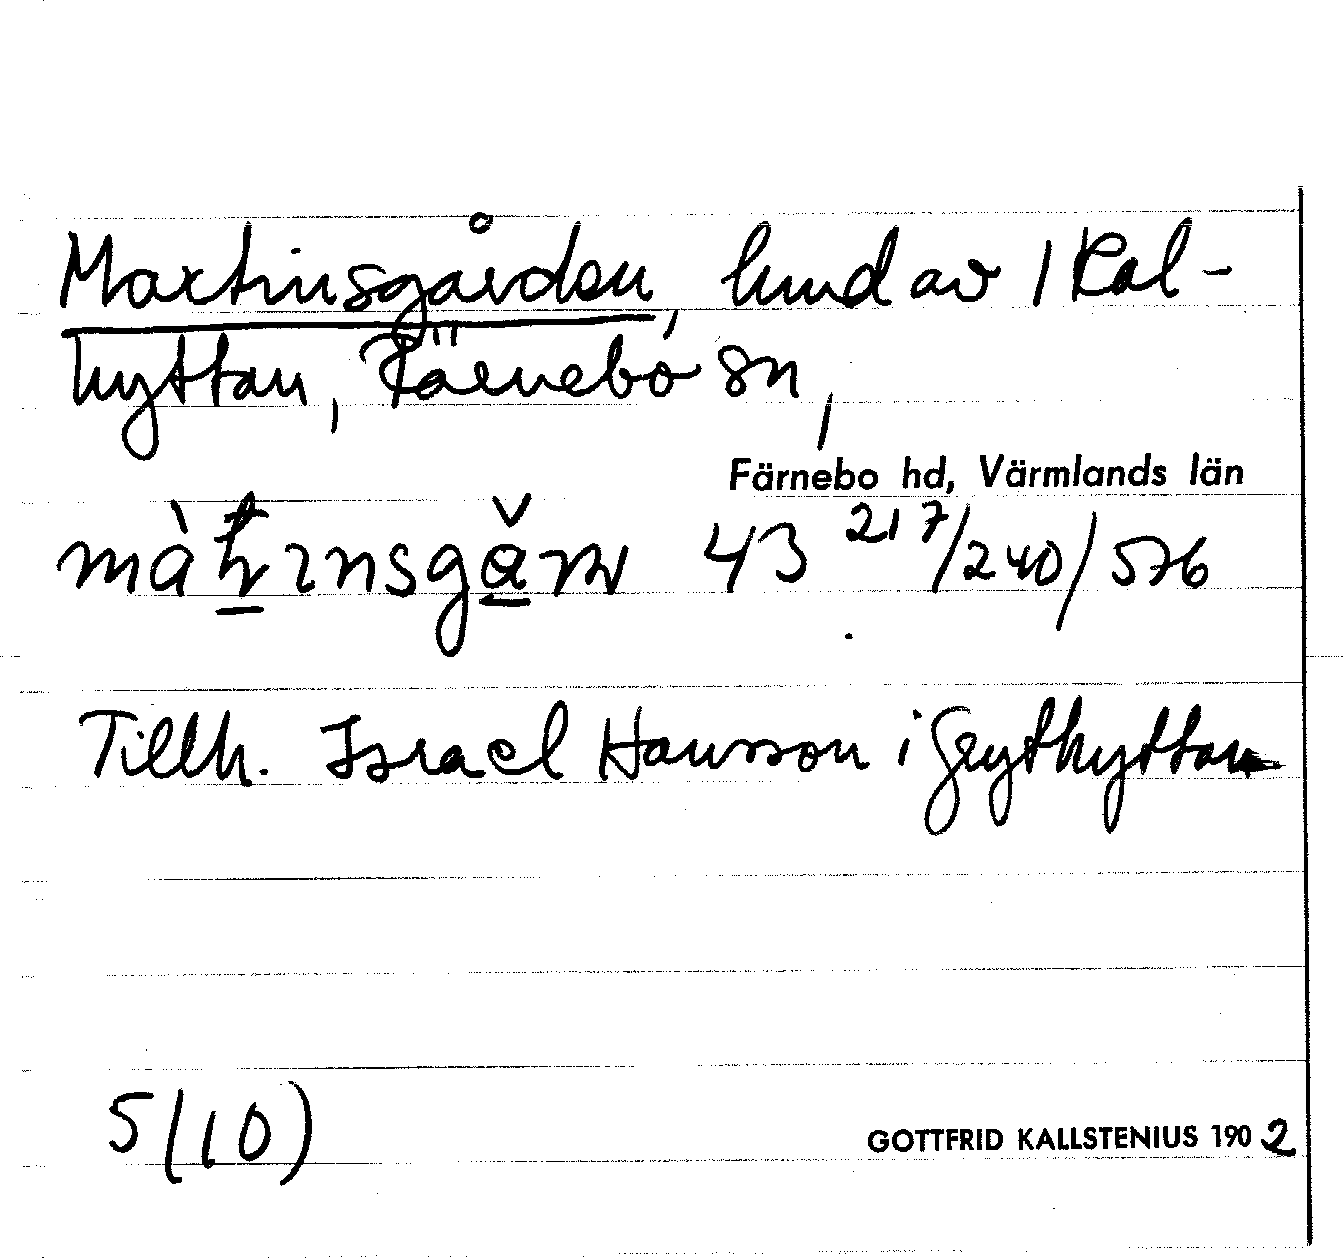 Martinsgården, hmd av 1 Kal-
hyttan, Färnebo sn,
Färnebo hd, Värmlands län
43 217/240/576
Tillh. Israel Hansson i
5(10)
GOTTFRID KALLSTENIUS 1902